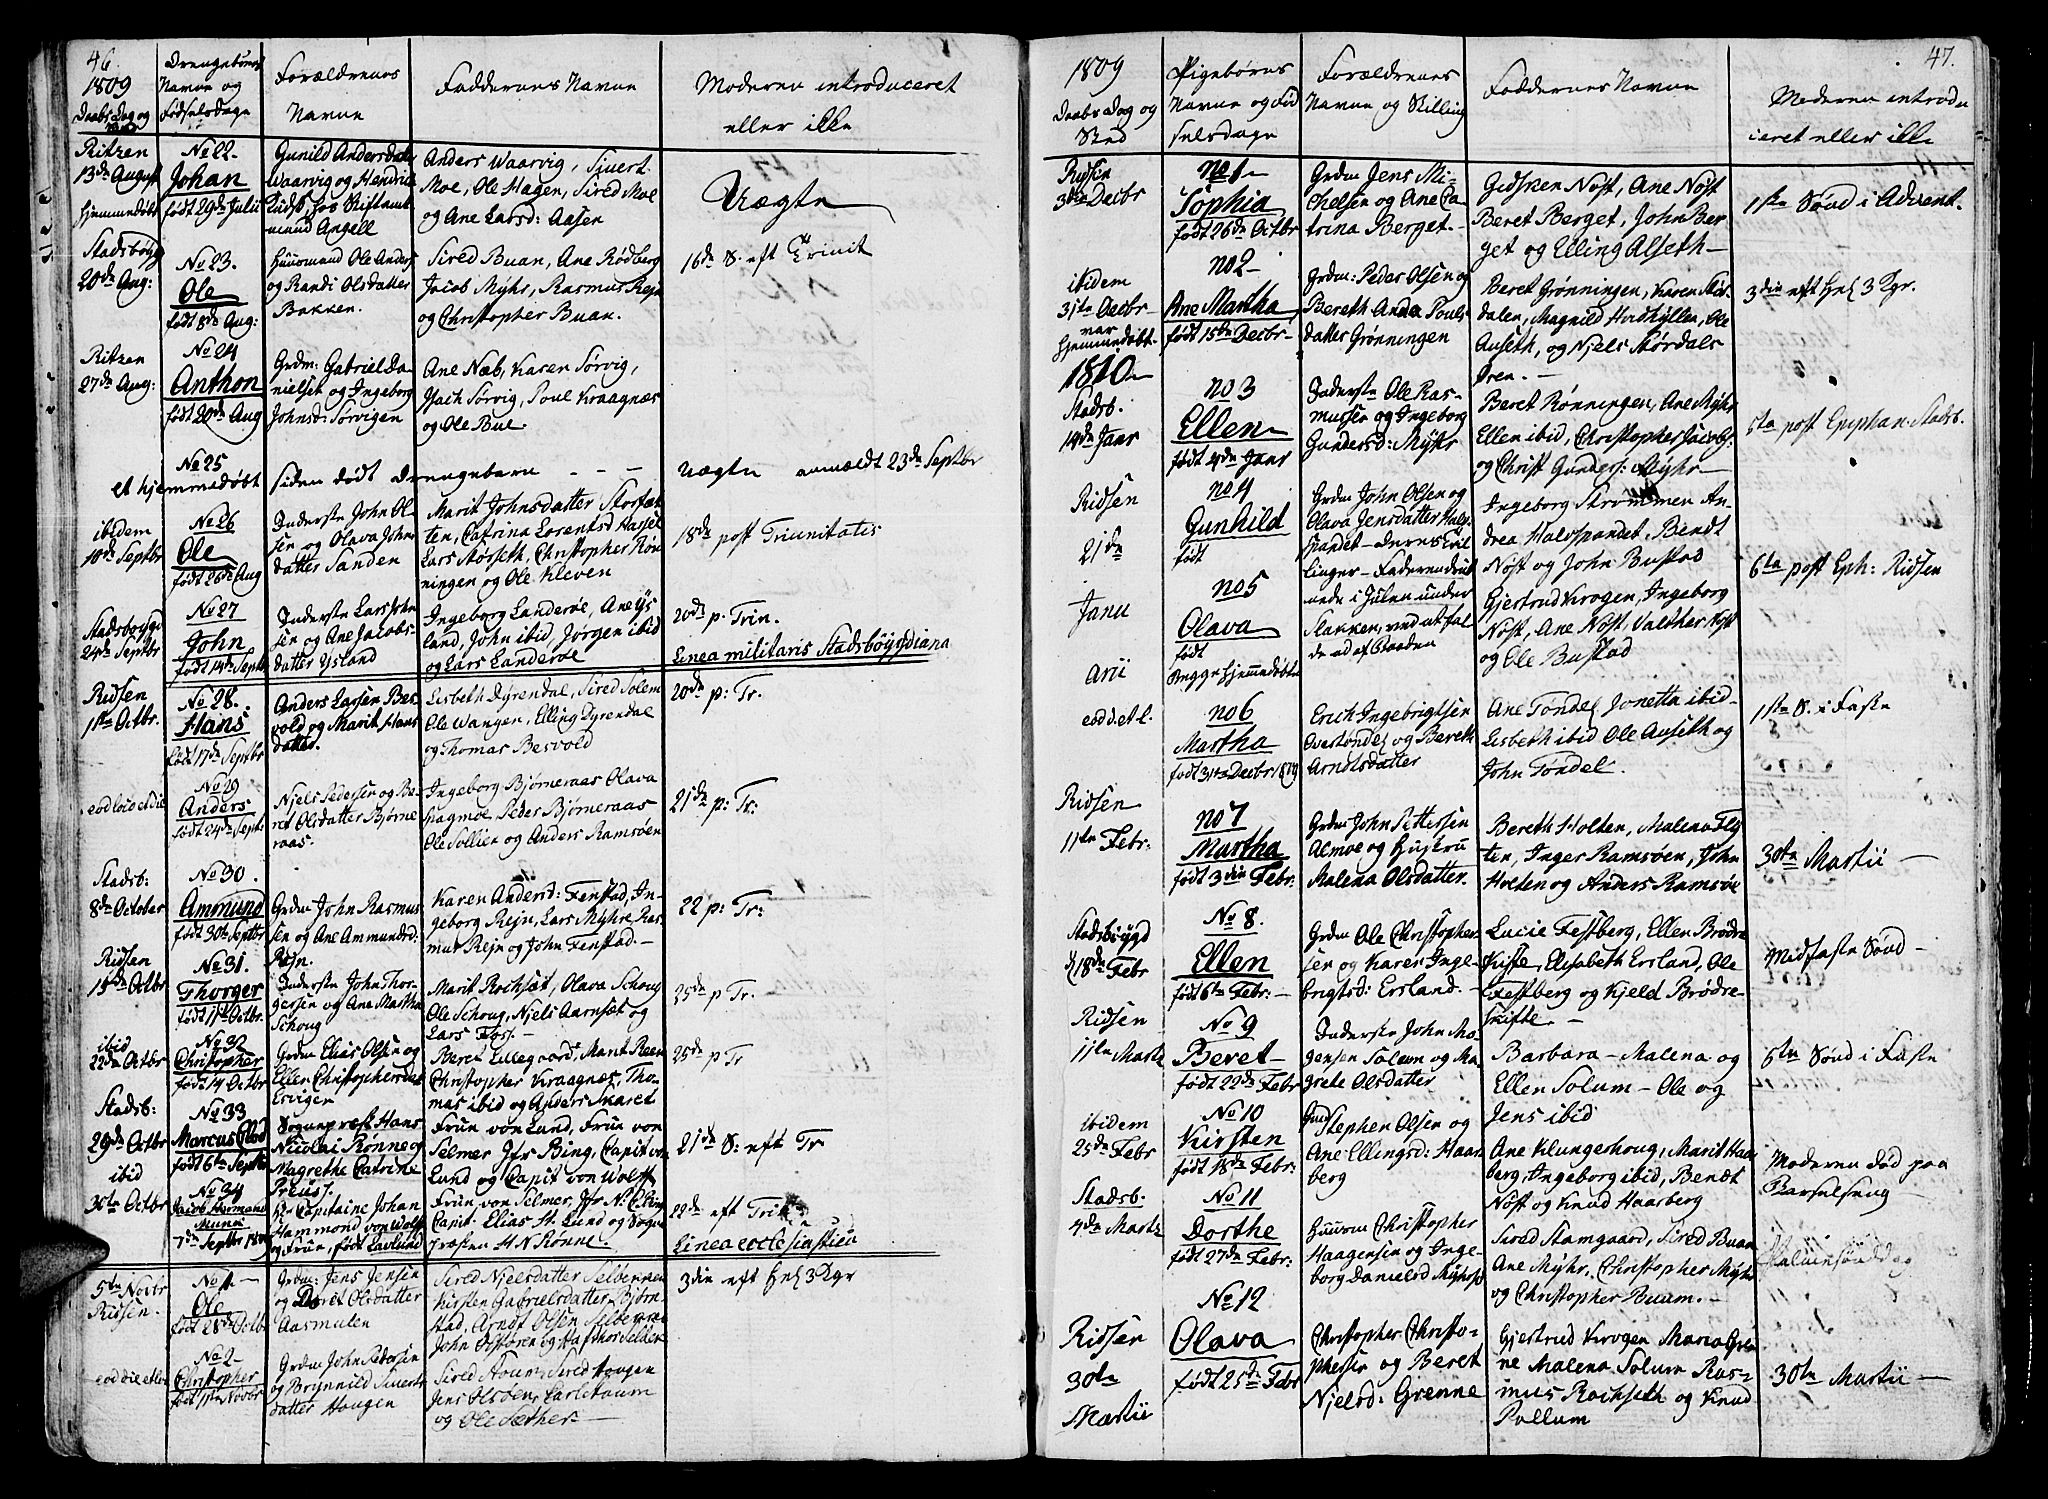 46.
1809
Daabs Dag og
Sted
Drengebørns
Navne og
Fødselsdage
Forældrenes
Navne
Faddernes Navne
Moderen introduceret
eller ikke
Ritzen
13de August
hjemmedøbt
No 22.
Johan
født 29de Julii
Gunild Andersdatter
Waarvig og Hendrik
hos Skiftamt
mand Angell
Anders Waarvig, Sivert
Moe, Ole Hagen, Sired Moe
og Ane Larsd: Aasen
Uægte
Stadsbøygd
20de Aug:
No 23.
Ole
født 8de Aug:
Huusmand Ole Anders
og Randi Olsdatter
Bakken.
Sired Buan, Ane Rødberg
Jacob Myhr, Rasmus Rejn
og Christopher Buan.
16de S. eft Trinit
Ritzen
27de Aug:
No 24
Anthon
født 20de Aug
Grdm: Gabriel Da
nielsen og Ingeborg
Johnsd: Sørvigen
Ane Næb, Karen Sørvig,
Isach Sørvig, Poul Kraagnæs
og Ole Bue.
No 25
et hjemmedøbt siden dødt Drengebarn - - -
Uægte anmældt 23de Septbr
ibidem
10de Septbr
No 26
Ole
født 26de Aug
Inderste John Ol
sen og Olava John
datter Sanden
Marit Johnsdatter Storsæt
ten, Catrina Lorentsd Hassel
Lars Størseth, Christopher Røn
ningen og Ole Kleven
18de post Triunitatis
Stadsboygd
24de Septbr
No 27
John
født 14de Septb
Inderste Lars John
sen og Ane Jacobs-
datter Ysland
Ingeborg Landerøe, Ane Ys
land, John ibid, Jørgen ibid
og Lars Landerøe
20de p. Trin.
Linea militaris Stadsbøygdiana
Ridsen
1ste Octbr.
No 28.
Hans
født 17de Septbr
Anders Larsen Bes
vold og Marit Hans
datter.
Lisbeth Dyrendal, Sired Solem
Ole Wangen, Elling Dyrendal
og Thomas Besvold
20de p: Tr.
eod loco et die
No 29
Anders
født 24de Septb
Njels Pedersen og Be-
ret Olsdatter Bjørne
raas.
Ingeborg Bjørneraas Olava
Hagmoe, Peder Bjørneraas
Ole Sollien og Anders Ramsøen
21de p: Tr:
Stadsb:
8de October
No 30.
Ammund
født 30te Septbr
Grdm John Rasmus
sen og Ane Ammundsd:
Rejn.
Karen Andersd: Fenstad, In-
geborg Rejn, Lars Myhre, Ras-
mus Rejn og John Fenstad.-
22 p: Tr:
Ridsen
15de Octbr
No 31.
Thorger
født 1ste Octbr.
Inderste John Thor-
gersen og Ane Martha
Schoug
Marit Rochsæt, Olava Schoug
Ole Schoug, Njels Aarnsæt og
Lars Flos.-
25de p Tr.
ibid
22de Octbr
No 32
Christopher
født 14 Octbr
Grdm Elias Olsen og
Ellen Christophersdat
Ersvigen
Beret Lillegaard, Marit Reen
Christopher Kraagnæs, Tho-
mas ibid og Anders Skaret
25de p Tr
Stadsb:
29de Octbr
No 33
Marcus Plod
født 6te Septbr
Sognepræst Hans
Nicolai Rønne og
Magrethe Catrine
Preuss.
Frue von Lund, Frue von
Selmer Jfr Bing, Capit von
Lund og Capit von Wolff
21de S: eft Tr
ibid
30te Octbr
No 34
Jacob Hermand
Munch
7de Septbr 1809
Hr Capitaine Johan
Hammond von Wolff
og Frue, født Lavlund
Frue von Selmer, Jfr N. C. Bing
Capit. Elias H. Lund og Sogne
Præsten H N Rønne.
22de eft Trin
Linea ecclesiastica
5te Novbr
Ridsen.
No 1.-
Ole
født 28de Octbr
Grdm: Jens Jensen
og Beret Olsdatter
Aasmulen
Sired Njelsdatter Selbennen
Kirsten Gabrielsdatter, Bjørn-
stad, Arndt Olsen Selbennen
John Olstøren og Hafthor Selder
3die eft Hel 3 Kgr
eod die et loco
No 2-
Christopher
født 11te Novbr
Grdm John Pedersen
og Brynnild Siverts
datter Hougen
Sired Houm, Sired Hougen
Jens Olsøen, Carl Houm
og Ole Sæther.-
47.
1809
Daabs Dag og
Sted
Pigebørns
Navne og Fød
selsdage
Forældrenes
Navne og Stilling
Faddernes Navne
Moderen introdu
ceret eller ikke
Ridsen
3die Decbr
No 1-
Sophia
født 26de Octbr
Grdm Jens Mi-
chelsen og Ane Ca-
trina Berget.-
Gidsken Nøst, Ane Nøst
Beret Berget, John Ber
get og Elling Alseth-
1ste Sønd i Advent.
ibidem
31te Decbr-
var
hjemmedøbt-
No 2-
Ane Martha
født 15de Decbr-
Grdm: Peder Olsen og
Bereth Anna Pouls
datter Grønningen
Beret Grønningen, Karen Stør
dalen, Magnild Hordhyllen, Ole
Auseth, og Njels Størdals
Øren.-
3die eft Hel 3 Kgr.
1810-
Stadsb.
14de Jaar
No 3
Ellen
født 4de Jaar
Inderste Ole Ras-
mussen og Ingeborg
Gundersd: Myhr
Beret Rønningen, Ane Myhr
Ellen ibid, Christopher Jacobs.
og Christ Gunders: Myhr-
5ta post Epiphan. Stadsb.
Ridsen
21de
Janu
arii
No 4
Gunhild
født
Grdm John Olsen og
Olava Jensdatter Hals-
spandet- deres Tvil
linger- Faderen druk
nede i Julen under
Stakken, ved at fal
de ud af Baaden
Ingeborg Strømmen An-
drea Halsspandet. Bendt
Nøst og John Bustad
No 5
Olava
født
Begge hjemmedøbte
Gjertrud Krogen, Ingeborg
Nøst, Ane Nøst, Valther Nøst
og Ole Bustad
6ta post Eph: Ridsen
eod d. et l.
No 6
Martha
født 31te Decbr 1809
Erich Ingebrigtsen
Overtøndel og Bereth
Arndtsdatter
Ane Tøndel Jonetta ibid-
Lisbeth ibid Ole Auseth og
John Tøndel.
1ste S. i Faste
Ridsen
11te Febr:
No 7
Martha
født 3die Febr:
Grdm John Pettersen
Almoe og Hustru
Malena Olsdatter.
Bereth Holten, Malena Fly
ten, Inger Ramsøen, John
Holten og Anders Ramsøe
30te Martii-
Stadsbøygd
18de Febr
No 8.
Ellen
født 6te Febr:-
Grdm Ole Christopher
sen og Karen Inge-
brigtsd: Ersland.-
Lucie Festberg, Ellen Brødre
skifte, Elisabeth Ersland, Ole
Festberg og Kjeld Brødre-
skifte-
Midfaste Sønd-
Ridsen
11te Marts
No 9
Beret-
født 22de Febr
Inderste John Mo-
gensen Solum og Ma
grete Olsdatter
Barbara- Malena og
Ellen Solum- Ole og
Jens ibid
5te Sønd i Faste
ibidem
25de Febr
No 10
Kirsten
født 18de Febr:
Stephen Olsen og
Ane Ellingsd: Haar
berg
Ane Klungerhoug, Marit Haar
berg, Ingeborg ibid, Bendt
Nøst og Knud Haarberg
Moderen død paa
Barselseng-
Stadsb.
4de Marts
No 11
Dorthe
født 27de Febr:
Huusm Christopher
Haagensen og Inge-
borg Danielsd Myhr
Sired Stamgaard, Sired Buan
Ane Myhr, Christopher Myhr
og Christopher Buam.-
Palmesønddag
Ridsen
30te
Martii
No 12
Olava
født 25de Febr
Christopher Christo-
phersen og Beret
Njelsd: Grenne
Gjertrud Krogen Maria Gren
ne Malena Solum Ras-
mus Rochseth og Knud
Pallum
30te Martii-